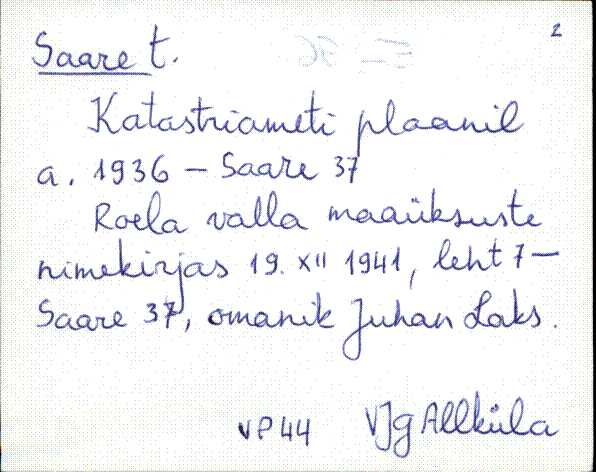 2
Saare t.
Katastriameti plaanil
a. 1936 – Saare 37
Roela valla maaüksuste
nimekirjas 19. XII 1941, leht 7 –
Saare 37, omanik Juhan Laks.
VP44 VJg Allküla